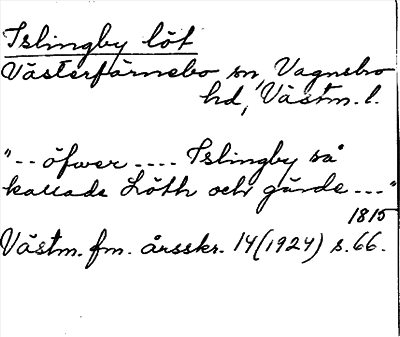 Islingby löt
Västerfärnebo sn, Vagnsbro
hd, Västm. l.
"-- öfwer .... Islingby så
kallade Löth och gärde ---"
1815
Västm. fm. årsskr. 14 (1924) s. 66.